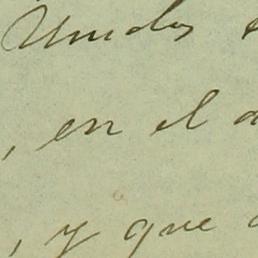 Unidos
, en el
, y que